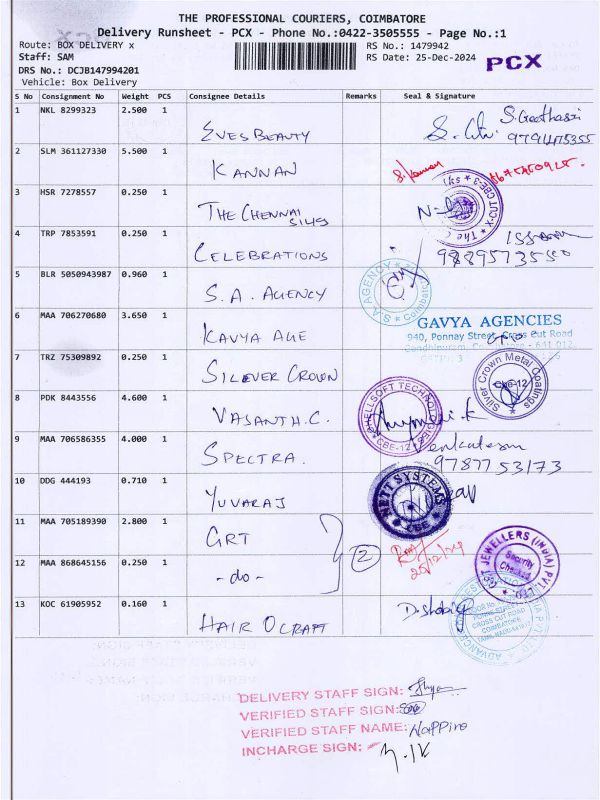 THE PROFESSIONAL COURIERS, COIMBATORE
Delivery Runsheet - PCX - Phone No.:0422-3505555 - Page No.:1
Route: BOX DELIVERY x
RS No.: 1479942
Staff: SAM
RS Date: 25-Dec-2024
PCX
DRS No.: DCJB147994201
Vehicle: Box Delivery
S No Consignment No Weight PCS Consignee Details Remarks Seal & Signature
1 NKL 8299323 2.500 1 EVES BEAUTY
9791475355
2 SLM 361127330 5.500 1 KANNAN
3 HSR 7278557 0.250 1 THE CHENNAI
SILKS
4 TRP 7853591 0.250 1 CELEBRATIONS
9889573550
5 BLR 5050943987 0.960 1 S.A. AGENCY
S.A AGENCY Coimbatore
6 MAA 706270680 3.650 1 KAVYA AGE
GAVYA AGENCIES
940, Ponnay Street, Cross Cut Road
7 TRZ 75309892 0.250 1 SILEVER CROWN
Silver Crown Metal Coatings
CBE-12
8 PDK 8443556 4.600 1 VASANTH.C.
SHELLSOFT TECHNOLOG
CBE-12
9 MAA 706586355 4.000 1 SPECTRA.
Venkatesan
9787753173
10 DDG 444193 0.710 1 YUVARAJ
NETT SYSTEMS
CBE
11 MAA 705189390 2.800 1 GRT
2
25/12/24
GRT JEWELLERS (INDIA) PVT. LTD.
Security
Checked
12 MAA 868645156 0.250 1 -do-
13 KOC 61905952 0.160 1 HAIR OCRAFT
CROSS CUT ROAD
COIMBATORE
DELIVERY STAFF SIGN:
VERIFIED STAFF SIGN:
VERIFIED STAFF NAME:
INCHARGE SIGN: